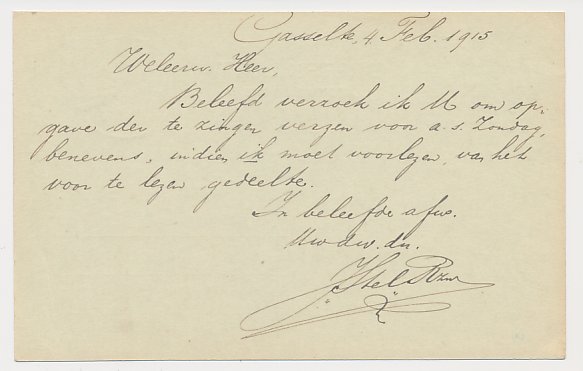 Gasselte, 4 Feb. 1915
Weleerw. Heer,
Beleefd verzoek ik U om op-
gave der te zingen verzen voor a.s. Zondag,
benevens, indien ik moet voorlezen, van het
voor te lezen gedeelte.
In beleefde afw.
Uwdw. dn.